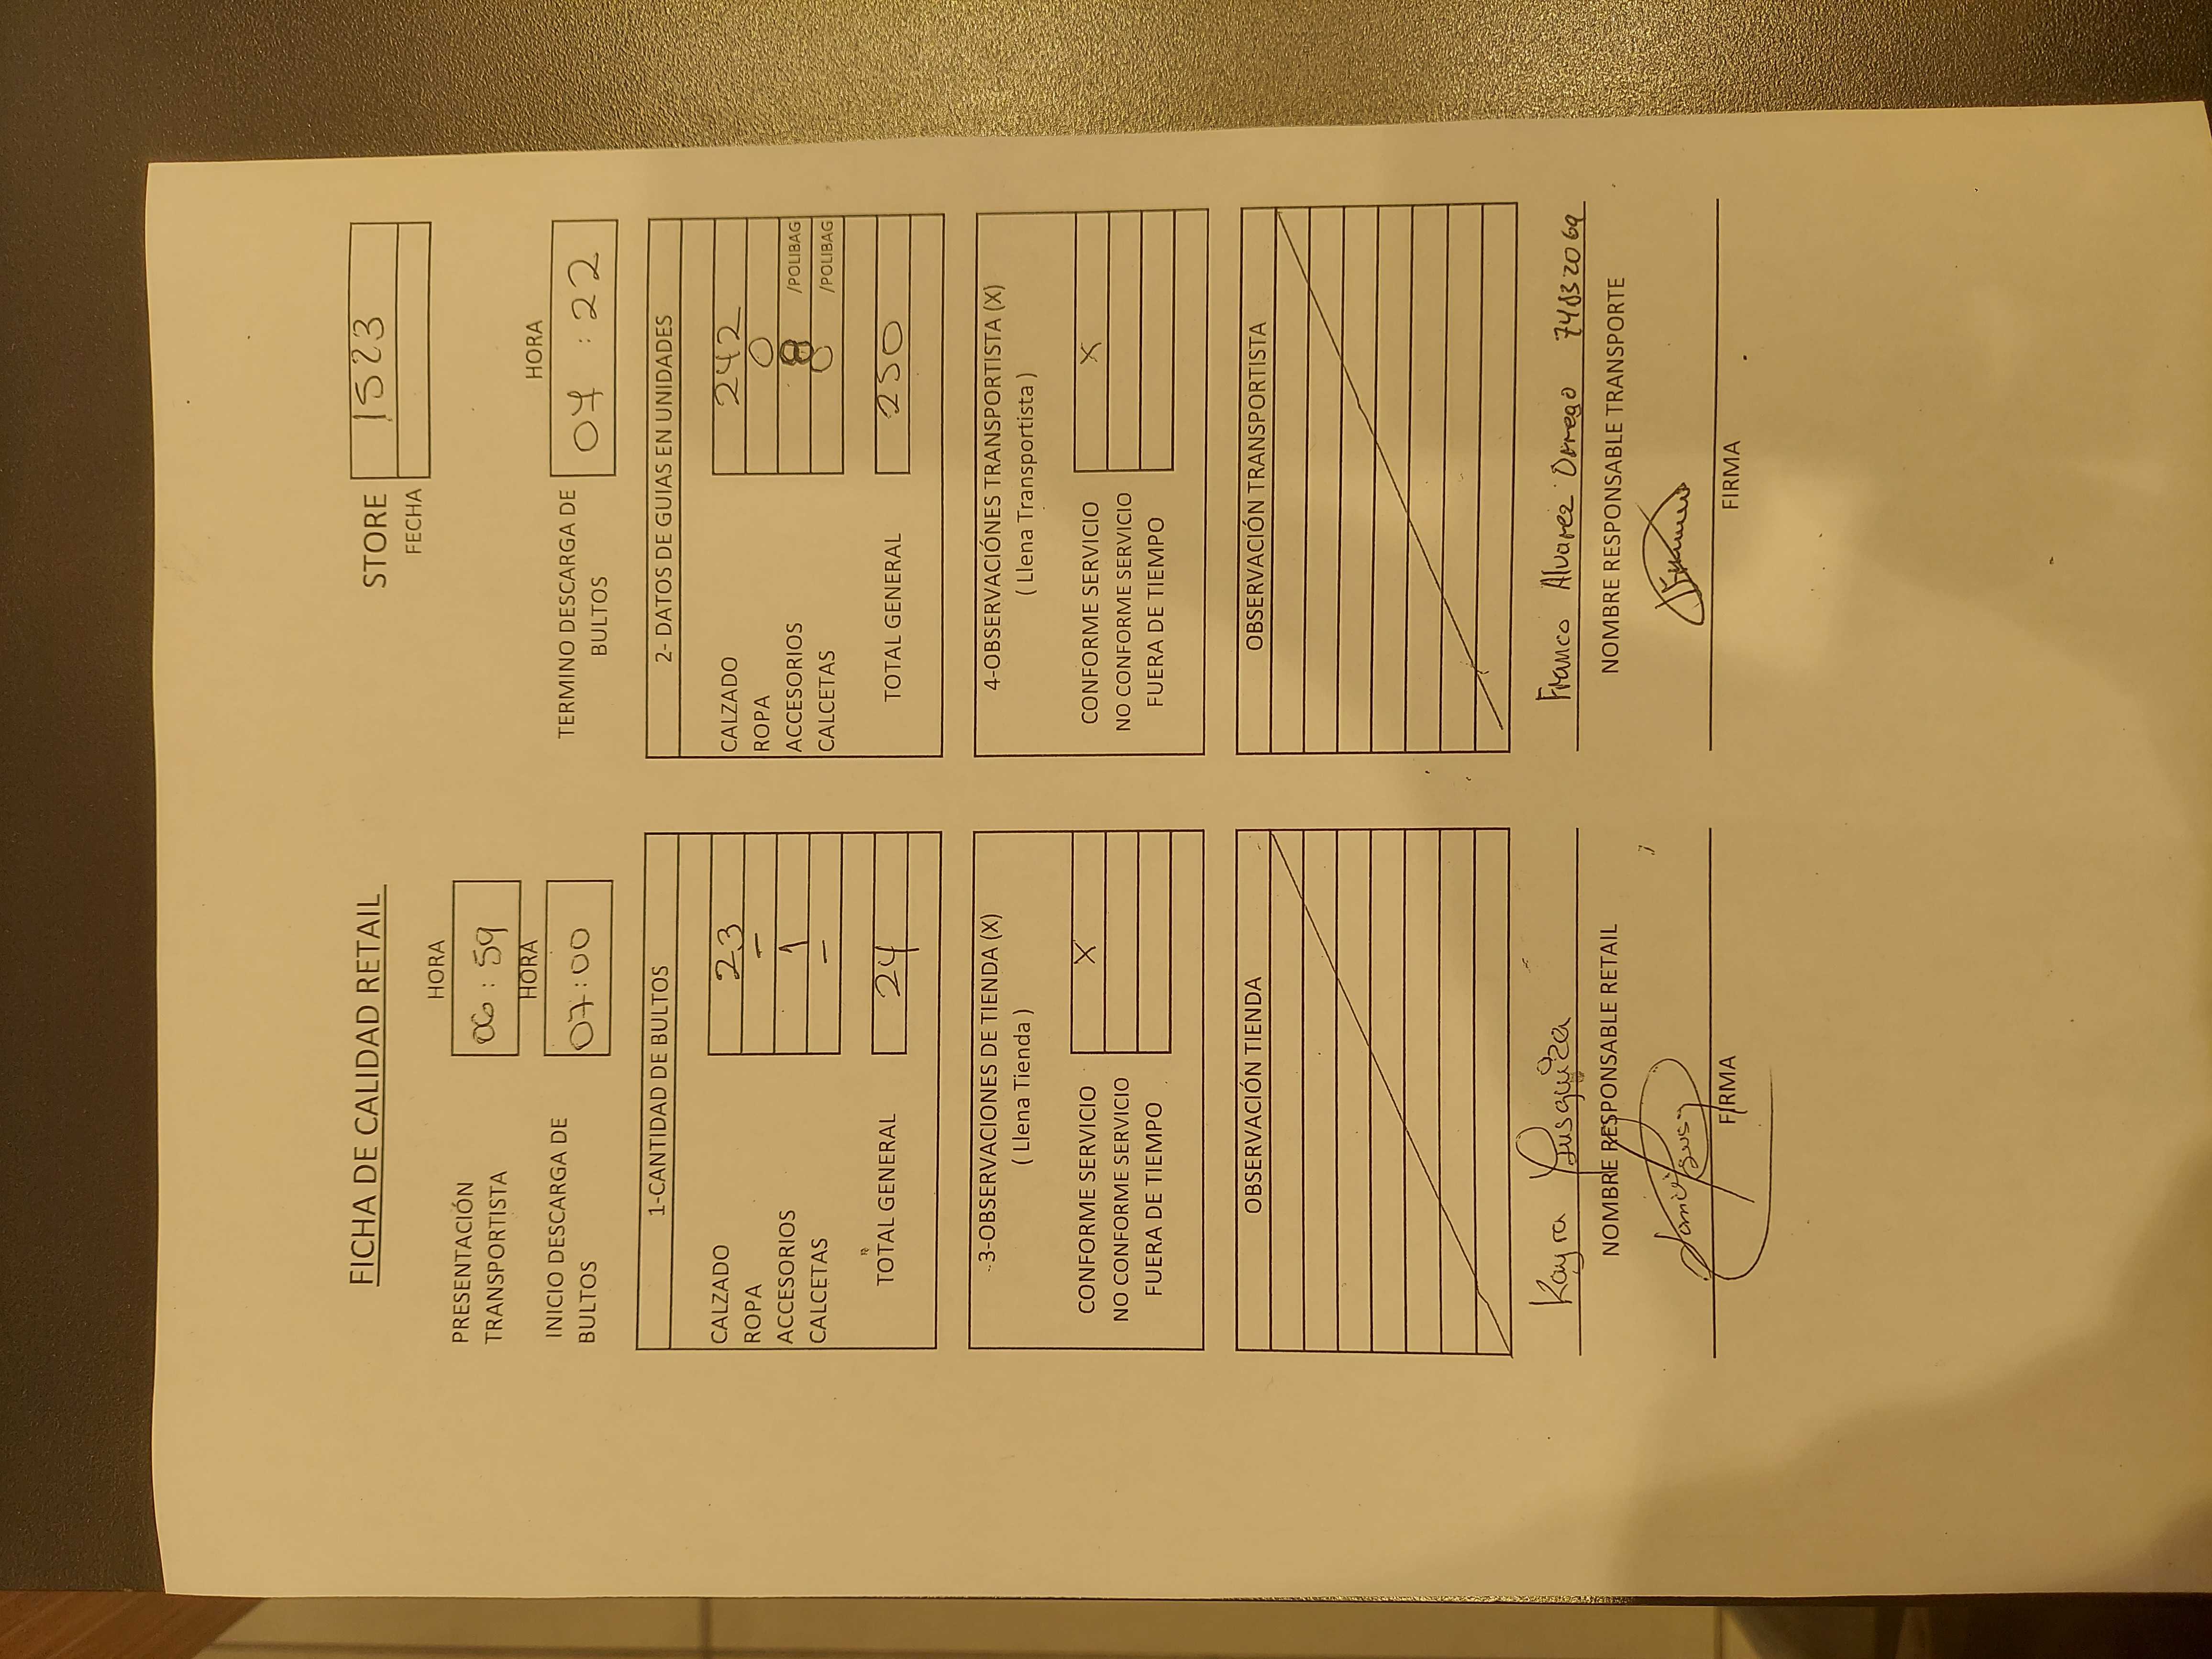 FICHA DE CALIDAD RETAIL
STORE 1523
FECHA
HORA
PRESENTACIÓN TRANSPORTISTA 06 : 59
HORA
INICIO DESCARGA DE BULTOS 07:00
HORA
TERMINO DESCARGA DE BULTOS 07 : 22
1-CANTIDAD DE BULTOS
CALZADO 23
ROPA -
ACCESORIOS 1
CALCETAS -
TOTAL GENERAL 24
2- DATOS DE GUIAS EN UNIDADES
CALZADO 242
ROPA 0
ACCESORIOS 8 /POLIBAG
CALCETAS 0 /POLIBAG
TOTAL GENERAL 250
3-OBSERVACIONES DE TIENDA (X)
( Llena Tienda )
CONFORME SERVICIO X
NO CONFORME SERVICIO
FUERA DE TIEMPO
4-OBSERVACIÓNES TRANSPORTISTA (X)
( Llena Transportista )
CONFORME SERVICIO X
NO CONFORME SERVICIO
FUERA DE TIEMPO
OBSERVACIÓN TIENDA
OBSERVACIÓN TRANSPORTISTA
Kayra Yusquiza
NOMBRE RESPONSABLE RETAIL
FIRMA
Franco Alvarez
NOMBRE RESPONSABLE TRANSPORTE
FIRMA